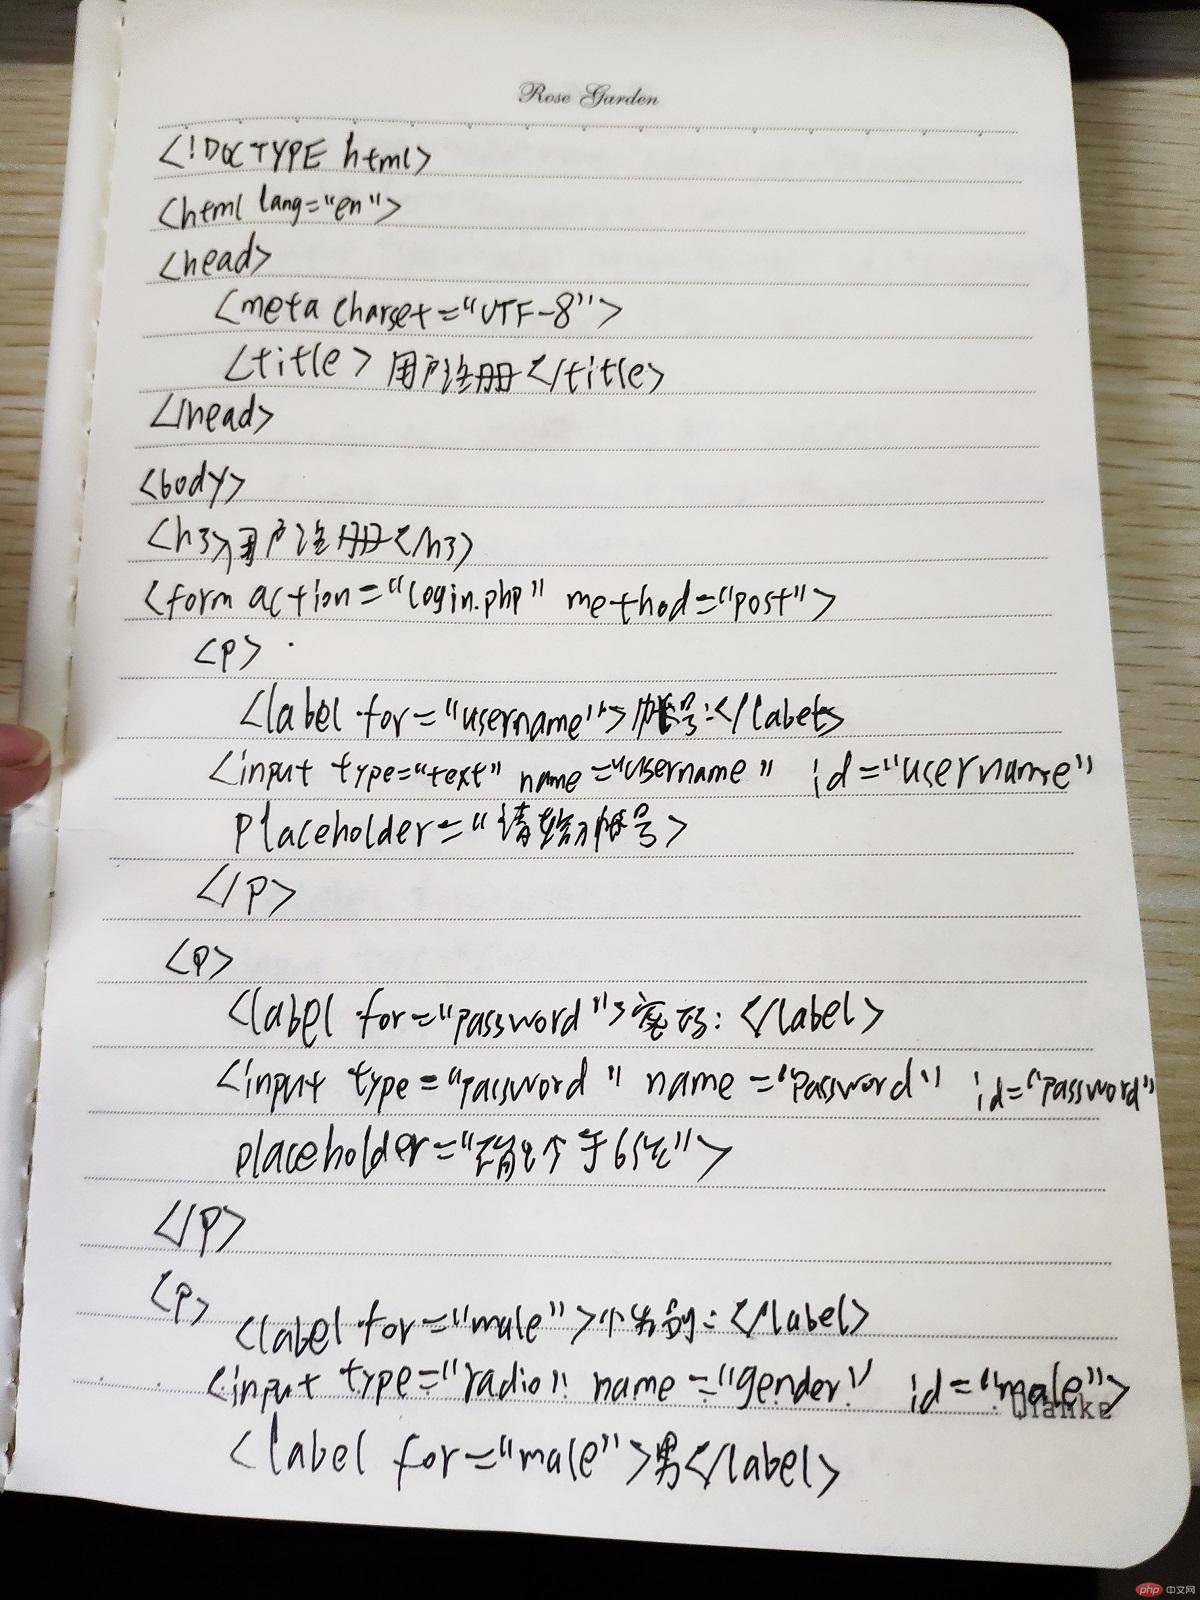 Rose Garden
<!DOCTYPE html>
<html lang="en">
<head>
<meta charset="UTF-8">
<title>用户注册</title>
</head>
<body>
<h3>用户注册</h3>
<form action="login.php" method="post">
<p>
<label for="username">帐号:</label>
<input type="text" name="username" id="username"
placeholder="请输入帐号>
</p>
<p>
<label for="password">密码:</label>
<input type="password" name="password" id="password"
placeholder="于6位">
</p>
<p>
<label for="male">性别:</label>
<input type="radio" name="gender" id="male">
Qianke
<label for="male">男</label>
php 中文网